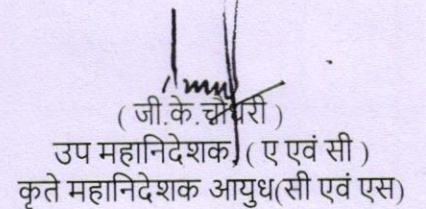 ( जी.के.चौधरी )
उप महानिदेशक, ( ए एवं सी )
कृते महानिदेशक आयुध(सी एवं एस)